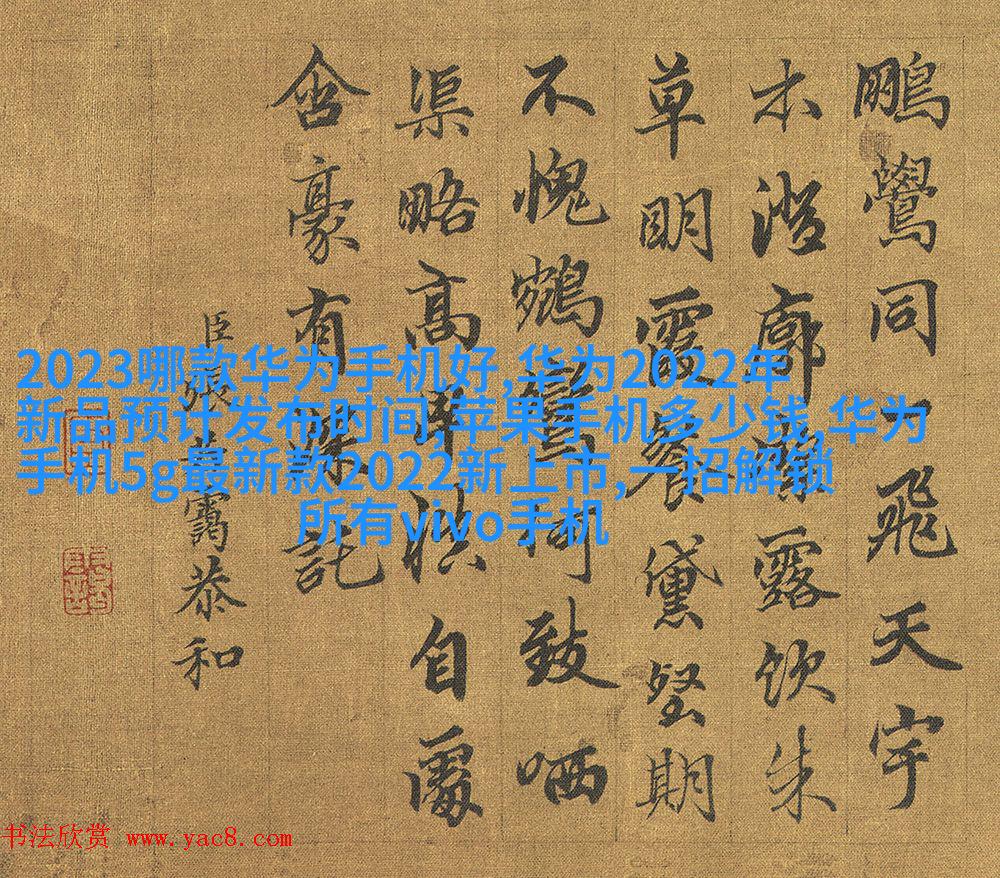 鵬鷽同一飛天宇
木澄廓露飲朱
草明霞餐黛堅期
不愧鶴鸞何致哂
渠略高自屬
含豪有託
臣張靄恭和
2023哪款华为手机好,华为2022年
新品预计发布时间,苹果手机多少钱,华为
手机5g最新款2022新上市,一招解锁
所有vivo手机
书法欣赏 www.yac8.com